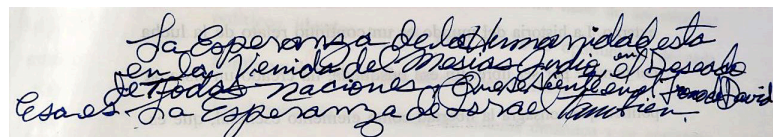 La Esperanza de la Humanidad esta
en la Venida del Mesias Judio, en el Deseado
de Todas naciones, Que se siente en el Trono de David
Esa es La Esperanza de Israel tambien